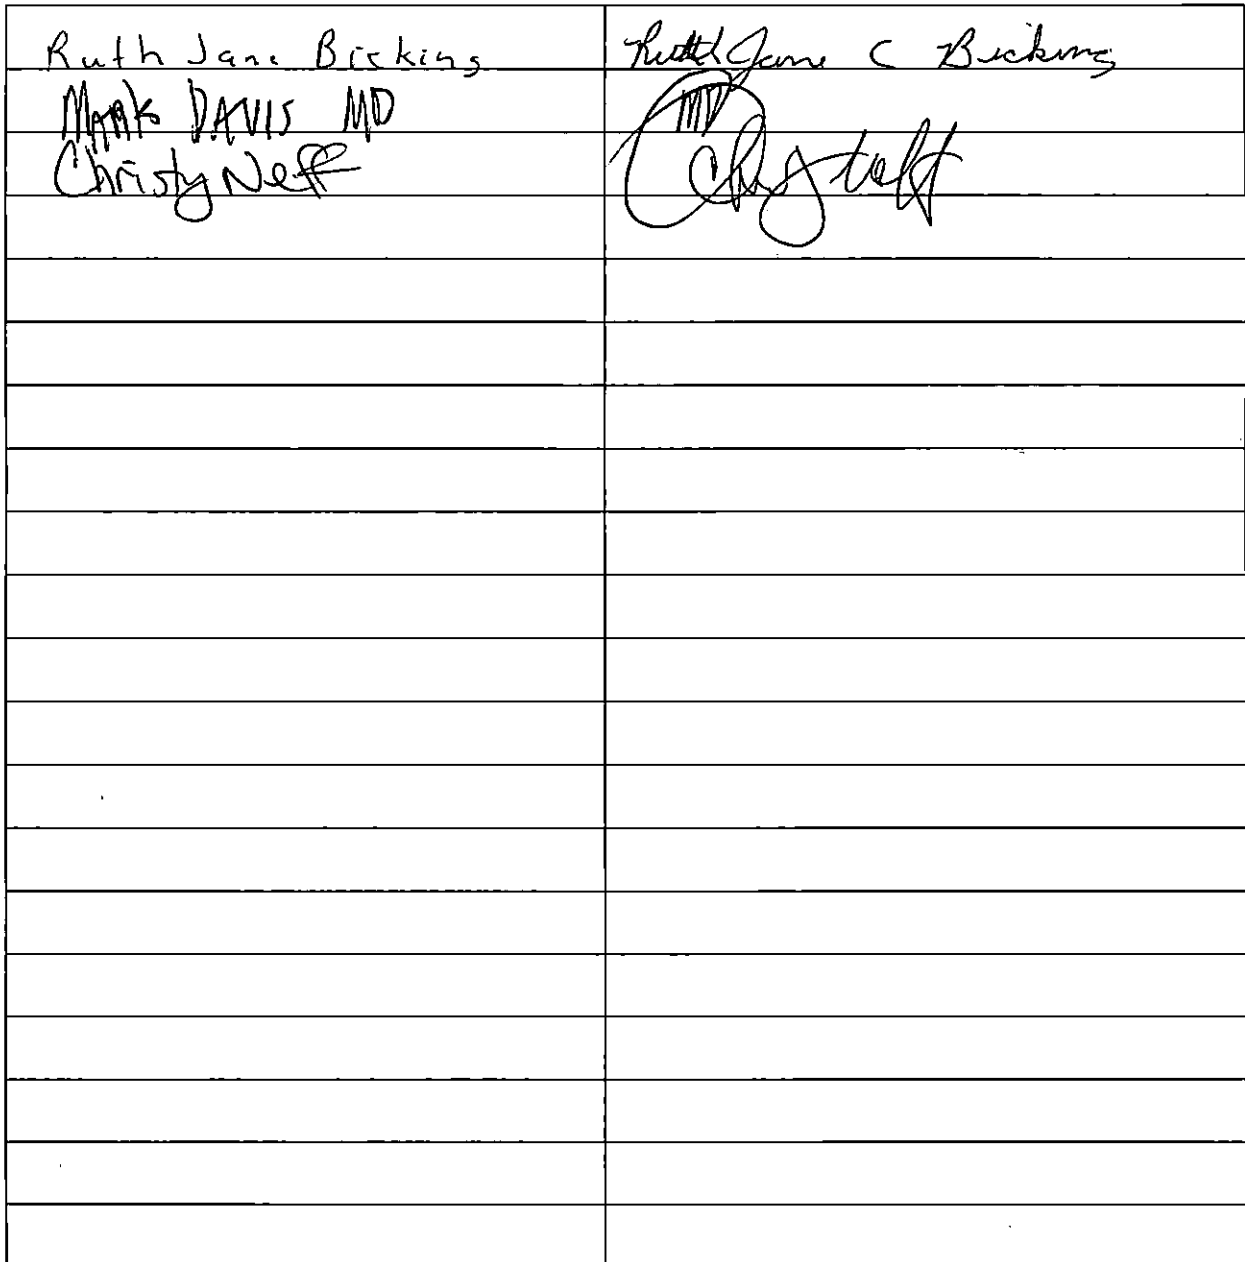 Ruth Jane Bicking Ruth Jane C Bicking
Mark DAVIS MD MD
Christy Neff Christy Neff